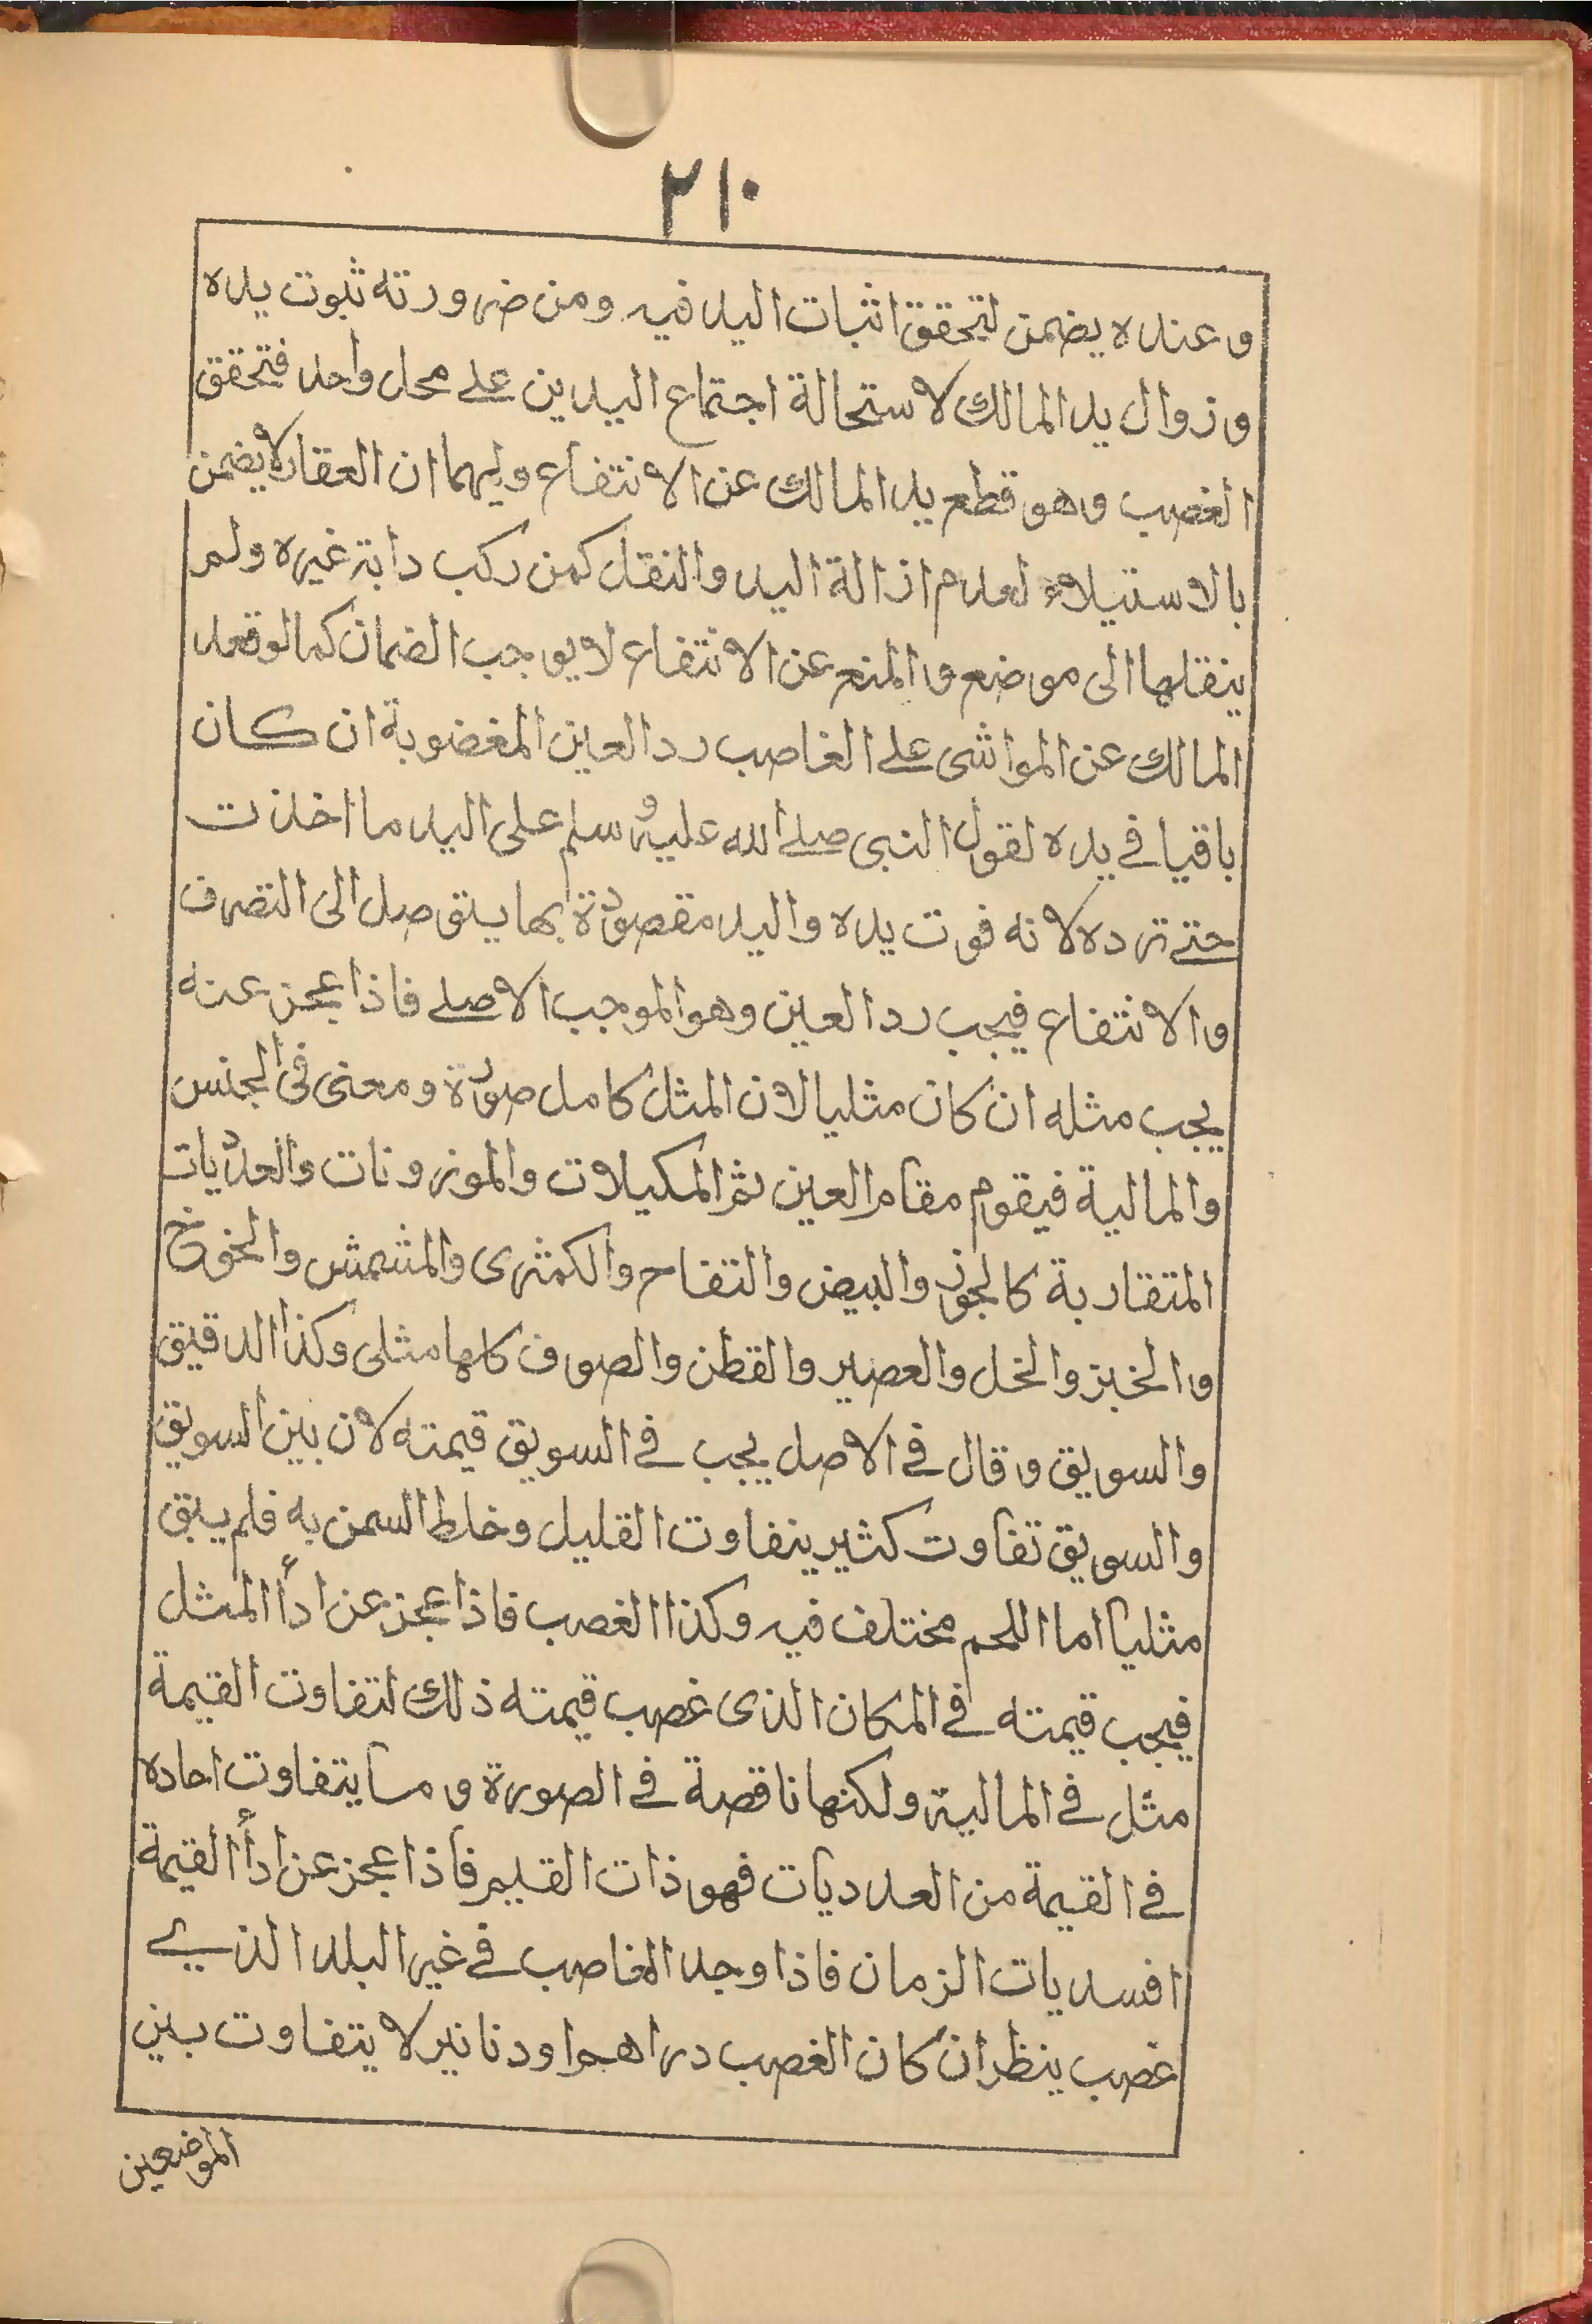 ٢١٠
وعنده يضمن لتحقق اثبات اليد فيه ومن ضرورته ثبوت يده
وزوال يد المالك لاستحالة اجتماع اليدين على محل واحد فتحقق
الغصب وهو قطع يد المالك عن الانتفاع ولهما ان العقار لا يضمن
بالاستيلاء لعدم ازالة اليد والنقل كمن ركب دابة غيره ولم
ينقلها الى موضع والمنع عن الانتفاع لا يوجب الضمان كما لوقعد
المالك عن المواشى على الغاصب رد العين المغضوبة ان كان
باقيا في يده لقول النبى صلى الله عليه وسلم على اليد ما اخذت
حتى ترده لانه فوت يده واليد مقصودة بها يتوصل الى التصرف
والانتفاع فيجب رد العين وهو الموجب الاصلى فاذا عجز عنه
يجب مثله ان كان مثليا لان المثل كامل صورة ومعنى فى الجنس
والمالية فيقوم مقام العين ثم المكيلات والموزونات والعدديات
المتقاربة كالجوز والبيض والتفاح والكمثرى والمشمش والخوخ
والخبز والخل والعصير والقطن والصوف كلها مثلى وكذا الدقيق
والسويق وقال في الاصل يجب في السويق قيمته لان بين السويق
والسويق تفاوت كثير يتفاوت القليل وخلط السمن به فلم يبق
مثليا اما اللحم مختلف فيه وكذا الغصب فاذا عجز عن ادأ المثل
فيجب قيمته في المكان الذى غصب قيمته ذلك لتفاوت القيمة
مثل في المالية ولكنها ناقصة في الصورة وما يتفاوت احاده
في القيمة من العدديات فهو ذات القيم فاذا عجز عن ادأ القيمة
افسد يات الزمان فاذا وجد الغاصب في غير البلد الذي
غصب ينظر ان كان الغصب دراهم او دنانير لا يتفاوت بين
الموضعين